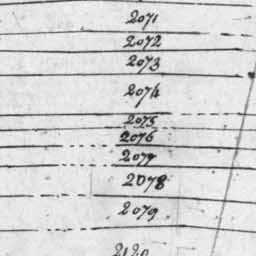 2071
2072
2073
2074
2075
2076
2077
2078
2079
2120